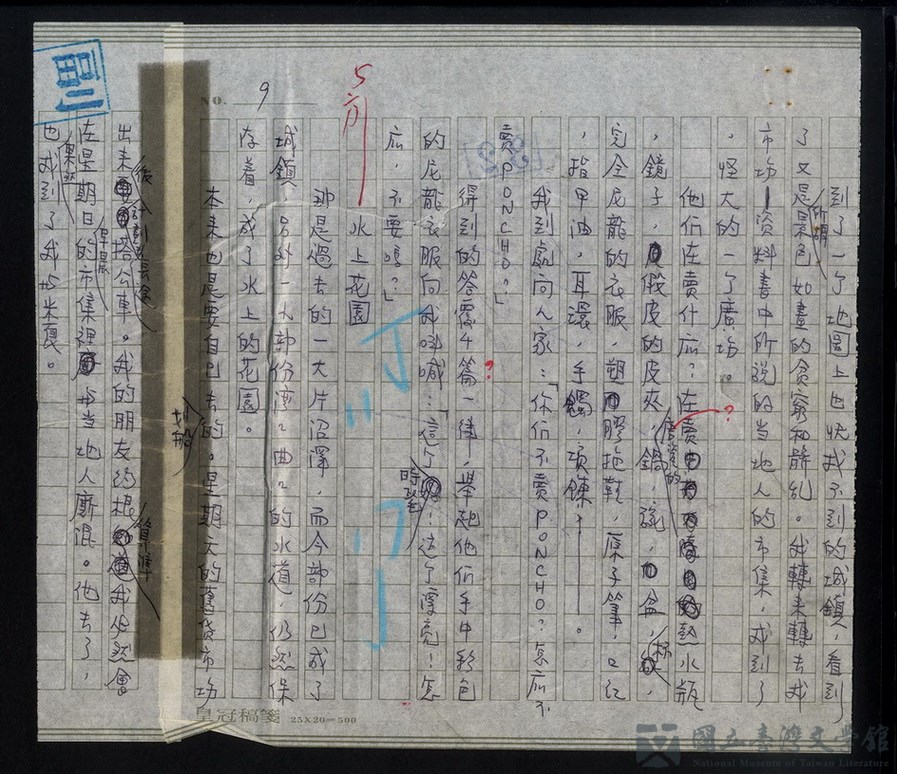 副
NO. 9
5前
到了一個地圖上也快找不到的城鎮，看到
了又是所謂景色如畫的貧窮和髒亂。我轉來轉去找
市場—資料書中所說的當地人的市集，找到了
，怪大的一個廣場。
他們在賣什麼？在賣熱水瓶
，鏡子，假皮的皮夾，鍋，碗，盆，杯，
唐瓷的
完全尼龍的衣服，塑膠拖鞋，原子筆，口紅
，指甲油，耳環，手鐲，項鍊—。
我到處向人家：「你們不賣PONCHO？怎麼不
賣PONCHO？」
得到的答覆千篇一律，舉起他們手中彩色
的尼龍衣服向我叫喊：這個時髦！這個漂亮！怎
麼，不要嗎？」
水上花園
那是過去的一大片沼澤，而今部份已成了
城鎮，另外一大部份灣灣曲曲的水道，仍然保
存著，成了水上的花園。
本來也是要自己去的。星期天的舊貨市場
划船
出來後計劃去搭公車。我的朋友約根算準我必然會
在星期日的市集裡與當地人廝混。他去了，
果然
也找到了我與米夏。
皇冠稿箋 25X20=500
國立臺灣文學館
National Museum of Taiwan Literature